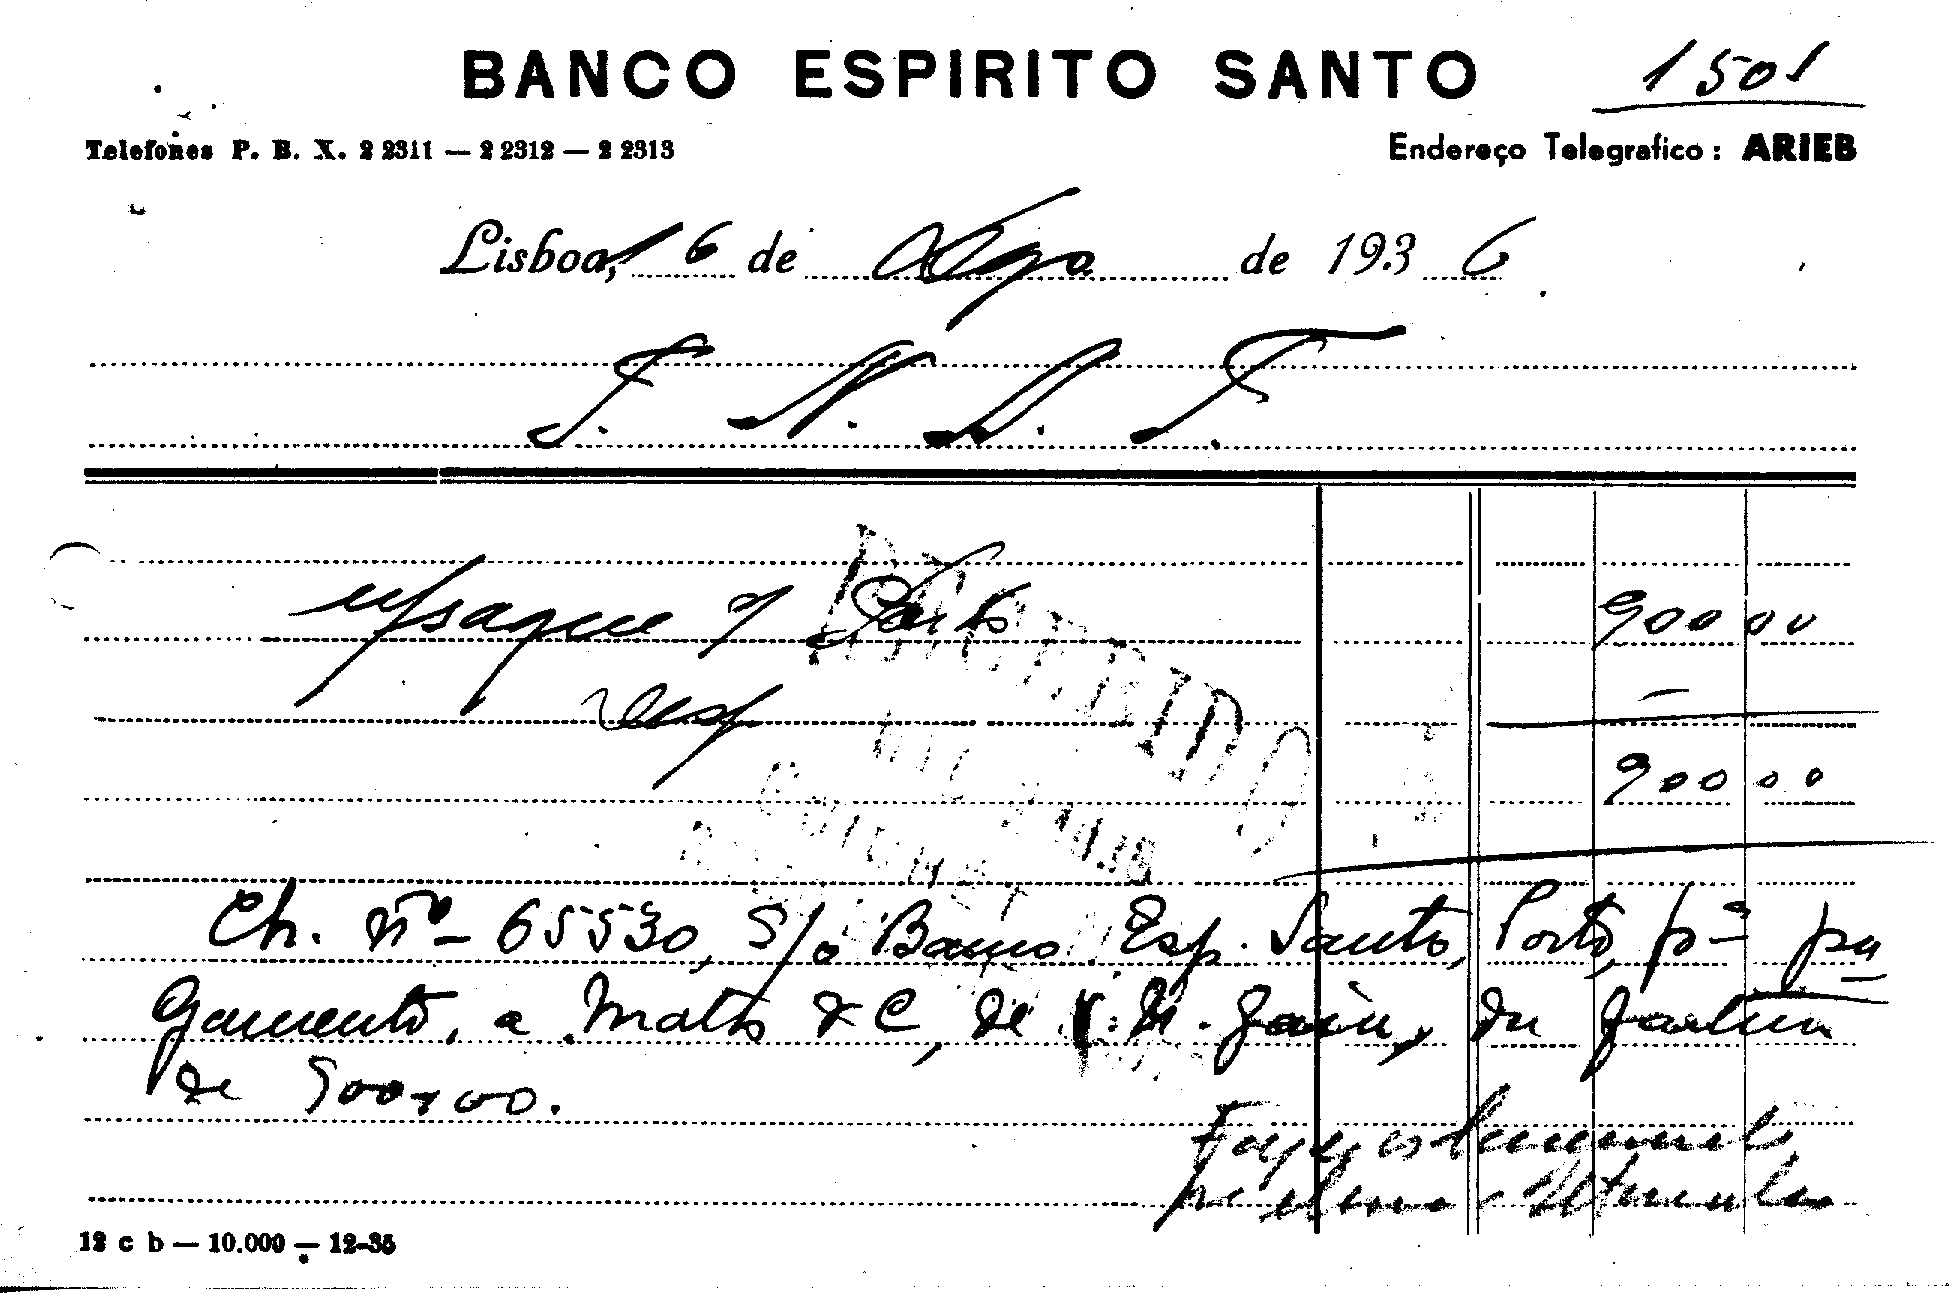 BANCO ESPIRITO SANTO
1501
Telefones P. B. X. 2 2311 — 2 2312 — 2 2313
Endereço Telegrafico: ARIEB
Lisboa, 16 de Ago de 1936
F. N. A. T.
n/saque s/ Porto 900 00
Desp —
900 00
Ch. nº 65530, S/o Banco Esp. Santo, Porto, pª pa
gamento, a Matos & C, de
de 900$00.
12 c b — 10.000 — 12-35